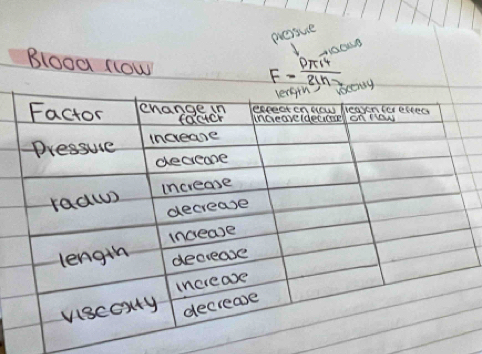 pressure
radius
Blood flow
F = Pπr4 / 8Ln
length viscosity
Factor change in factor effect on flow increase/decrease reason for effect on flow
Pressure increase
decrease
radius increase
decrease
length increase
decrease
viscosity increase
decrease